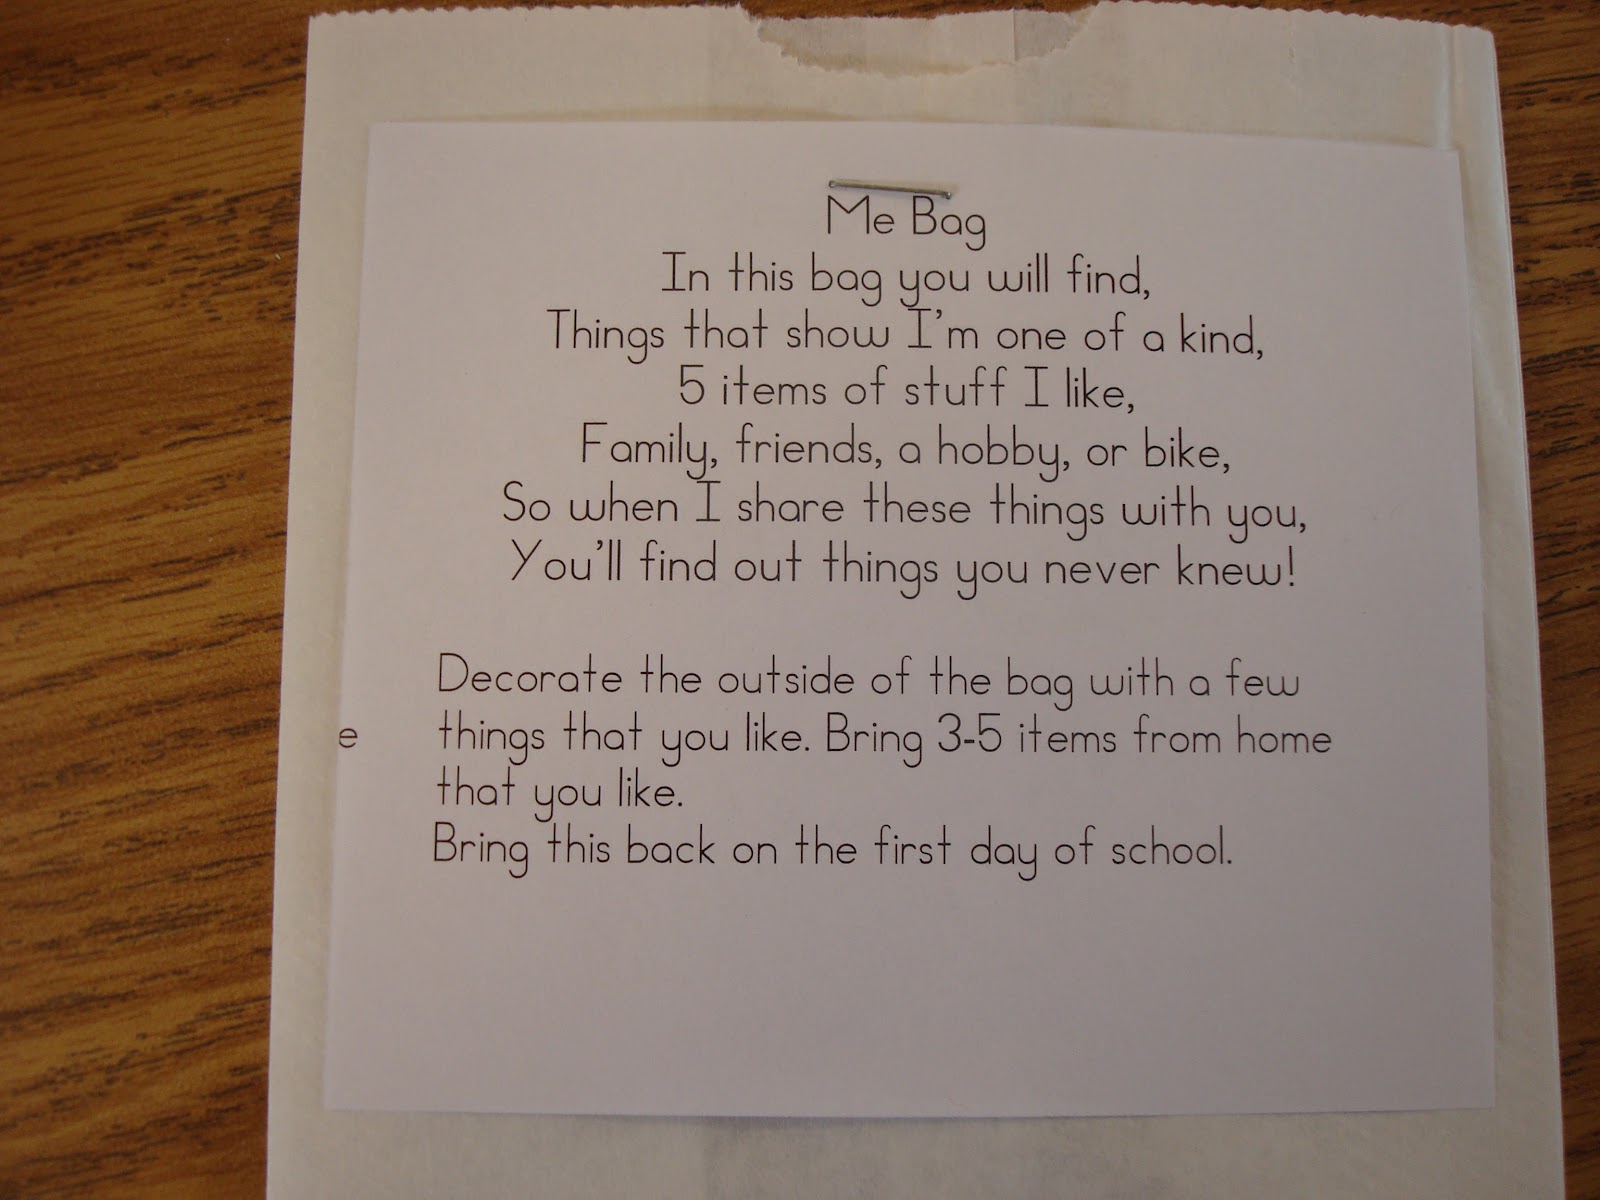 Me Bag
In this bag you will find,
Things that show I'm one of a kind,
5 items of stuff I like,
Family, friends, a hobby, or bike,
So when I share these things with you,
You'll find out things you never knew!
Decorate the outside of the bag with a few
e things that you like. Bring 3-5 items from home
that you like.
Bring this back on the first day of school.